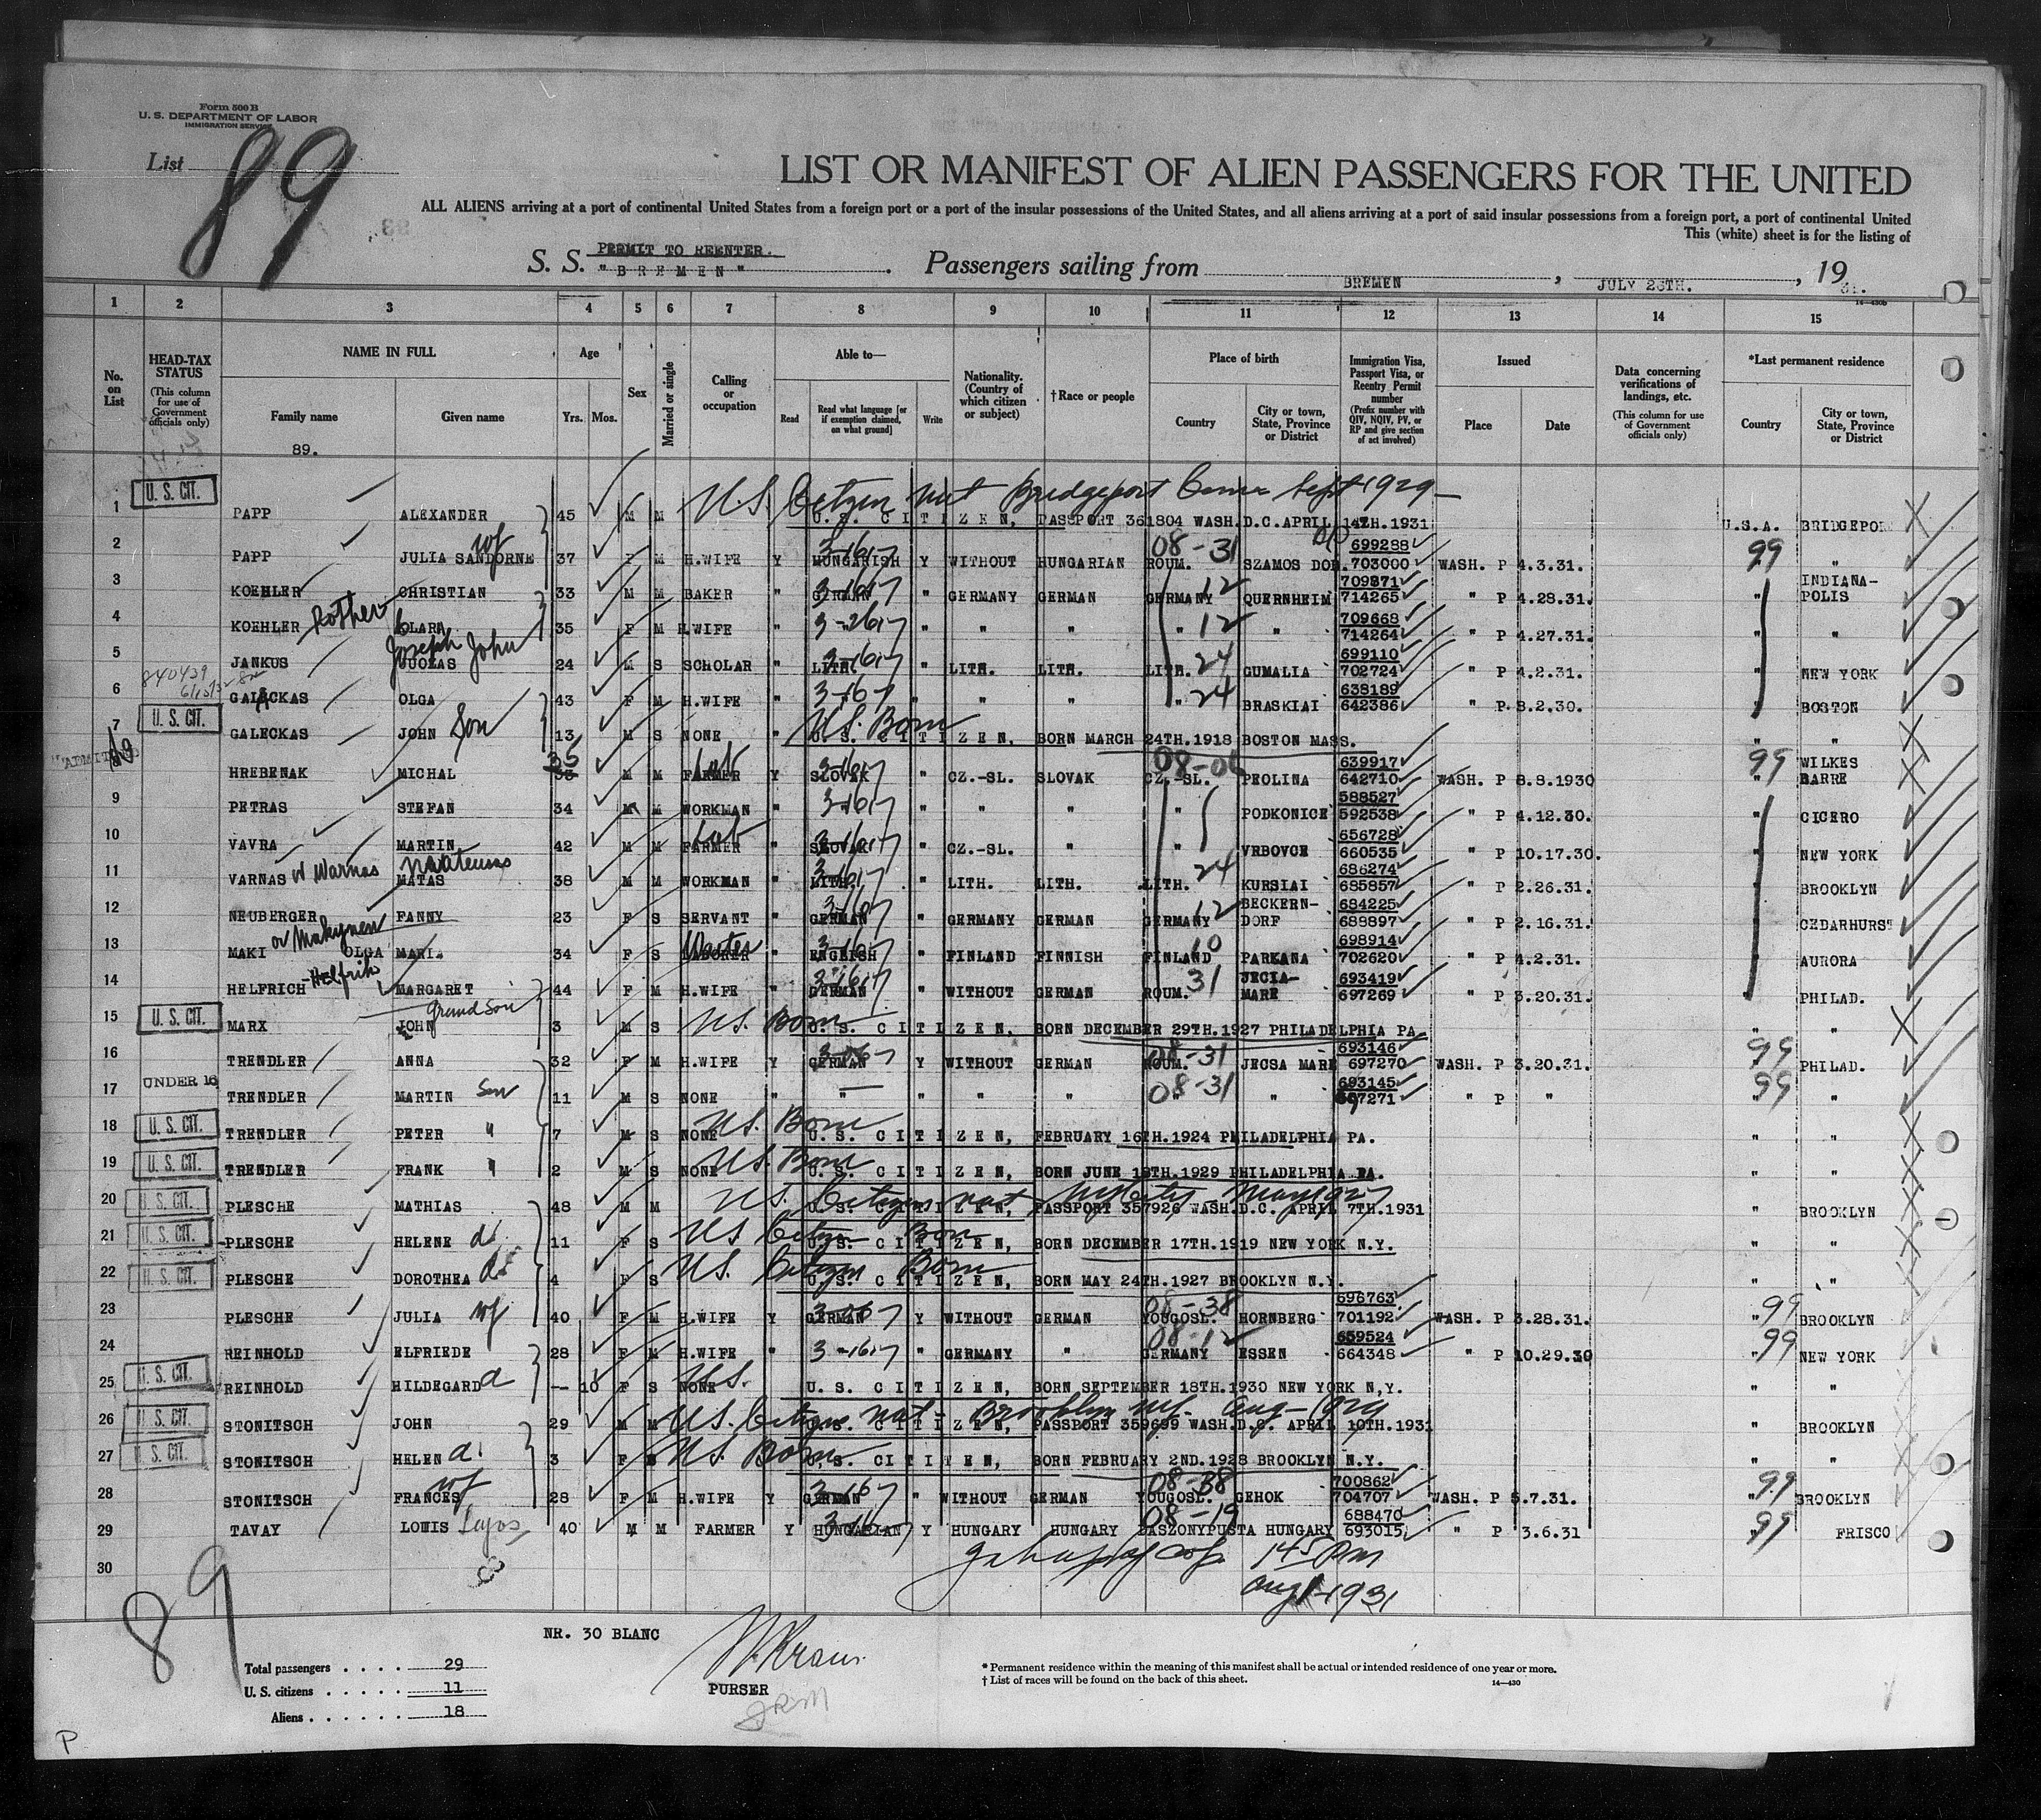 Form 500 B
U. S. DEPARTMENT OF LABOR
IMMIGRATION SERVICE
List 89
LIST OR MANIFEST OF ALIEN PASSENGERS FOR THE UNITED
ALL ALIENS arriving at a port of continental United States from a foreign port or a port of the insular possessions of the United States, and all aliens arriving at a port of said insular possessions from a foreign port, a port of continental United
This (white) sheet is for the listing of
PERMIT TO REENTER.
S. S. "BREMEN" . Passengers sailing from BREMEN , JULY 26TH. , 19 31.
14—430b
1 2 3 4 5 6 7 8 9 10 11 12 13 14 15
No. on List
HEAD-TAX STATUS (This column for use of Government officials only)
NAME IN FULL Family name Given name
Age Yrs. Mos.
Sex
Married or single
Calling or occupation
Able to— Read Read what language [or if exemption claimed, on what ground] Write
Nationality. (Country of which citizen or subject)
†Race or people
Place of birth Country City or town, State, Province or District
Immigration Visa, Passport Visa, or Reentry Permit number (Prefix number with QIV, NQIV, PV, or RP and give section of act involved)
Issued Place Date
Data concerning verifications of landings, etc. (This column for use of Government officials only)
*Last permanent residence Country City or town, State, Province or District
89.
U.S. Citizen nat Bridgeport Conn Sept 1929
1 U. S. CIT. PAPP ALEXANDER 45 M M U.S. CITIZEN, PASSPORT 361804 WASH.D.C.APRIL 14TH.1931 U.S.A. BRIDGEPOR
2 PAPP JULIA SANDORNE wf 37 F M H.WIFE Y HUNGARISH Y WITHOUT HUNGARIAN ROUM. 08-31 SZAMOS DOB. 699288 703000 WASH. P 4.3.31. 99 " "
3 KOEHLER CHRISTIAN 33 M M BAKER " GERMAN " GERMANY GERMAN GERMANY 12 QUERNHEIM 709871 714265 " P 4.28.31. " INDIANAPOLIS
4 KOEHLER Rother CLARA 35 F M H.WIFE " 3-26-17 " " " " 12 " 709668 714264 " P 4.27.31. " "
5 JANKUS JUOZAS Joseph John 24 M S SCHOLAR " LITH. " LITH. LITH. LITH. 24 GUMALIA 699110 702724 " P 4.2.31. " NEW YORK
6 GALECKAS OLGA 43 F M H.WIFE " " " " " 24 BRASKIAI 638189 642386 " P. 8.2.30. " BOSTON
7 U. S. CIT. GALECKAS JOHN Son 13 M S NONE " U.S. Born U.S. CITIZEN, BORN MARCH 24TH.1918 BOSTON MASS. " "
8 ADMITTED HREBENAK MICHAL 35 M M FARMER Lab Y SLOVAK " CZ.-SL. SLOVAK CZ.-SL. 08-06 PEOLINA 639917 642710 WASH. P 8.8.1930 99 WILKES BARRE
9 PETRAS STEFAN 34 M M WORKMAN " " " " " PODKONICE 588527 592538 " P 4.12.30. " CICERO
10 VAVRA MARTIN 42 M M FARMER Lab " SLOVAK " CZ.-SL. " " VRBOVCE 656728 660535 " P 10.17.30. " NEW YORK
11 VARNAS or Warnas MATAS 38 M M WORKMAN " LITH. " LITH. LITH. LITH. 24 KURSIAI 686274 685857 " P 2.26.31. " BROOKLYN
12 NEUBERGER FANNY 23 F S SERVANT " GERMAN " GERMANY GERMAN GERMANY 12 BECKERN-DORF 684225 688897 " P 2.16.31. " CEDARHURST
13 MAKI or Makynen OLGA MARIA 34 F S LABORER " ENGLISH " FINLAND FINNISH FINLAND 10 PARKANA 698914 702620 " P 4.2.31. " AURORA
14 HELFRICH Helfrih MARGARET 44 F M H.WIFE " GERMAN " WITHOUT GERMAN ROUM. 31 JECIA-MARE 693419 697269 " P 3.20.31. PHILAD.
15 U. S. CIT. MARX JOHN grand Son 3 M S U.S. Born U.S. CITIZEN, BORN DECEMBER 29TH.1927 PHILADELPHIA PA. " "
16 TRENDLER ANNA 32 F M H.WIFE Y GERMAN Y WITHOUT GERMAN ROUM. 08-31 JECSA MARE 693146 697270 WASH. P 3.20.31. 99 PHILAD.
17 UNDER 16 TRENDLER MARTIN Son 11 M S NONE " " " " " 08-31 " 693145 697271 " P " 99 " "
18 U. S. CIT. TRENDLER PETER " 7 M S NONE U.S. Born U.S. CITIZEN, FEBRUARY 16TH.1924 PHILADELPHIA PA. " "
19 U. S. CIT. TRENDLER FRANK " 2 M S NONE U.S. Born U.S. CITIZEN, BORN JUNE 18TH.1929 PHILADELPHIA PA. " "
20 U. S. CIT. PLESCHE MATHIAS 48 M M U.S. Citizen nat NY City May 1927 U.S. CITIZEN, PASSPORT 357926 WASH.D.C. APRIL 7TH.1931 " BROOKLYN
21 U. S. CIT. PLESCHE HELENE d. 11 F S U.S. Citizen Born U.S. CITIZEN, BORN DECEMBER 17TH.1919 NEW YORK N.Y. " "
22 U. S. CIT. PLESCHE DOROTHEA d. 4 F S U.S. Citizen Born U.S. CITIZEN, BORN MAY 24TH.1927 BROOKLYN N.Y. " "
23 PLESCHE JULIA wf 40 F M H.WIFE Y GERMAN Y WITHOUT GERMAN YOUGOSL. 08-38 HORNBERG 696763 701192 WASH. P 3.28.31. 99 BROOKLYN
24 REINHOLD ELFRIEDE 28 F M H.WIFE " 3-16-17 " GERMANY " GERMANY 08-12 ESSEN 659524 664348 " P 10.29.30 99 NEW YORK
25 U. S. CIT. REINHOLD HILDEGARD d — 10 F S NONE U.S. U.S. CITIZEN, BORN SEPTEMBER 18TH.1930 NEW YORK N,Y. " "
26 U. S. CIT. STONITSCH JOHN 29 M M U.S. Citizen Nat - Brooklyn NY. Aug-1929 U.S. CITIZEN, PASSPORT 359699 WASH.D.C. APRIL 10TH.1931 " BROOKLYN
27 U. S. CIT. STONITSCH HELEN d. 3 F U.S. Born U.S. CITITEN, BORN FEBRUARY 2ND.1928 BROOKLYN N.Y. " "
28 STONITSCH FRANCES wf 28 F M H.WIFE Y GERMAN " WITHOUT GERMAN YOUGOSL. 08-38 GEHOK 700862 704707 WASH. P 5.7.31. 99 BROOKLYN
29 TAVAY LOUIS Lajos 40 M M FARMER Y HUNGARIAN Y HUNGARY HUNGARY 08-19 LASZONYPUSTA HUNGARY 688470 693015 " P 3.6.31 99 FRISCO
30
145 Pm
Aug 1-1931
89
NR. 30 BLANC
W. Kraus
PURSER
JRM
Total passengers . . . . 29
U. S. citizens . . . . . 11
Aliens . . . . . . 18
* Permanent residence within the meaning of this manifest shall be actual or intended residence of one year or more.
† List of races will be found on the back of this sheet.
14—430
P